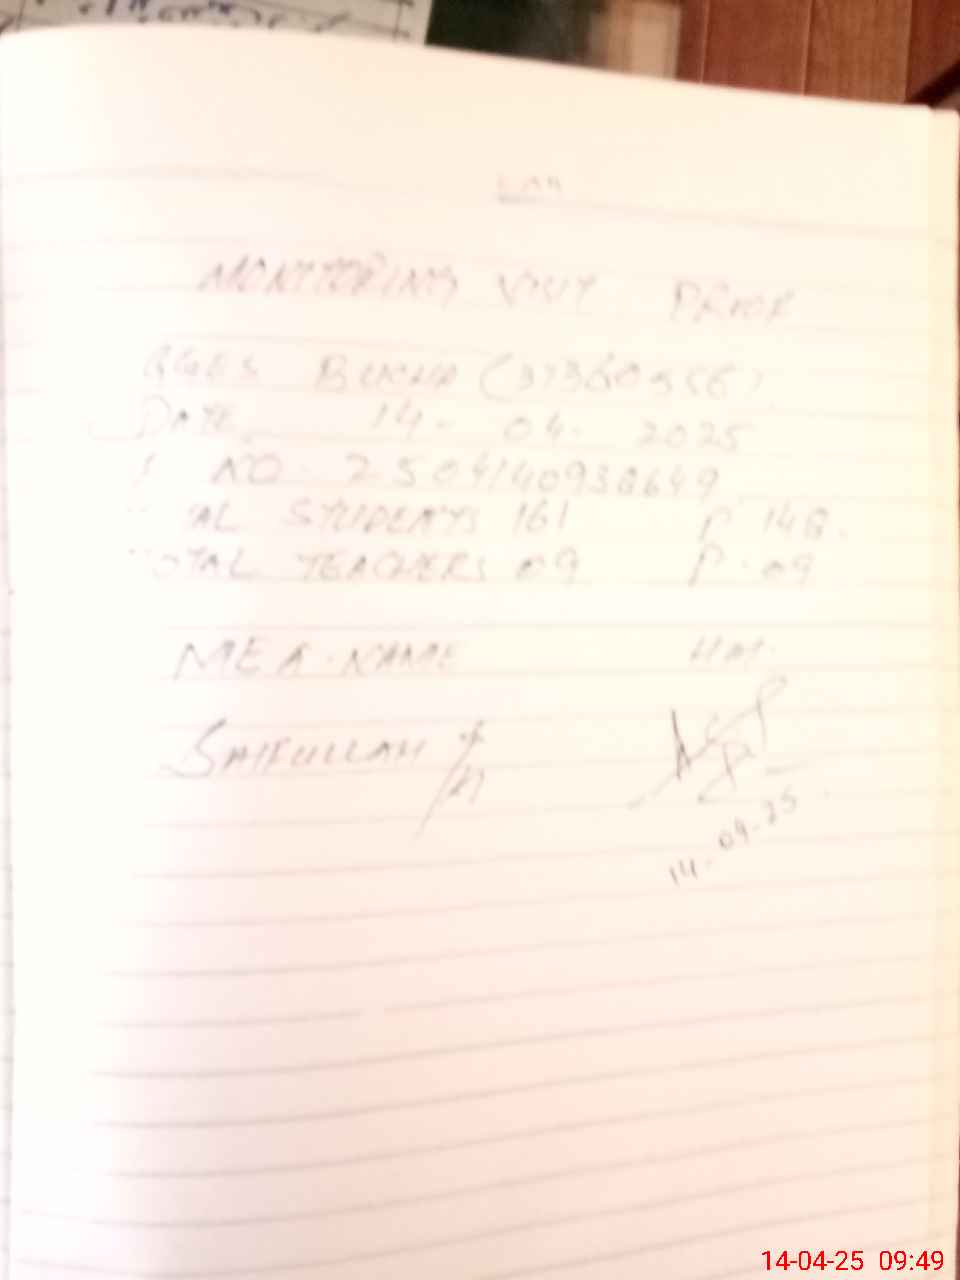 MONITORING VISIT PROOF
GGES
DATE 14-04-2025
NO. 2504140938649
AL STUDENTS 161 P 148.
OTAL TEACHERS 09 P.09
MEA.NAME HM.
SAIFULLAH
14-04-25
14-04-25 09:49